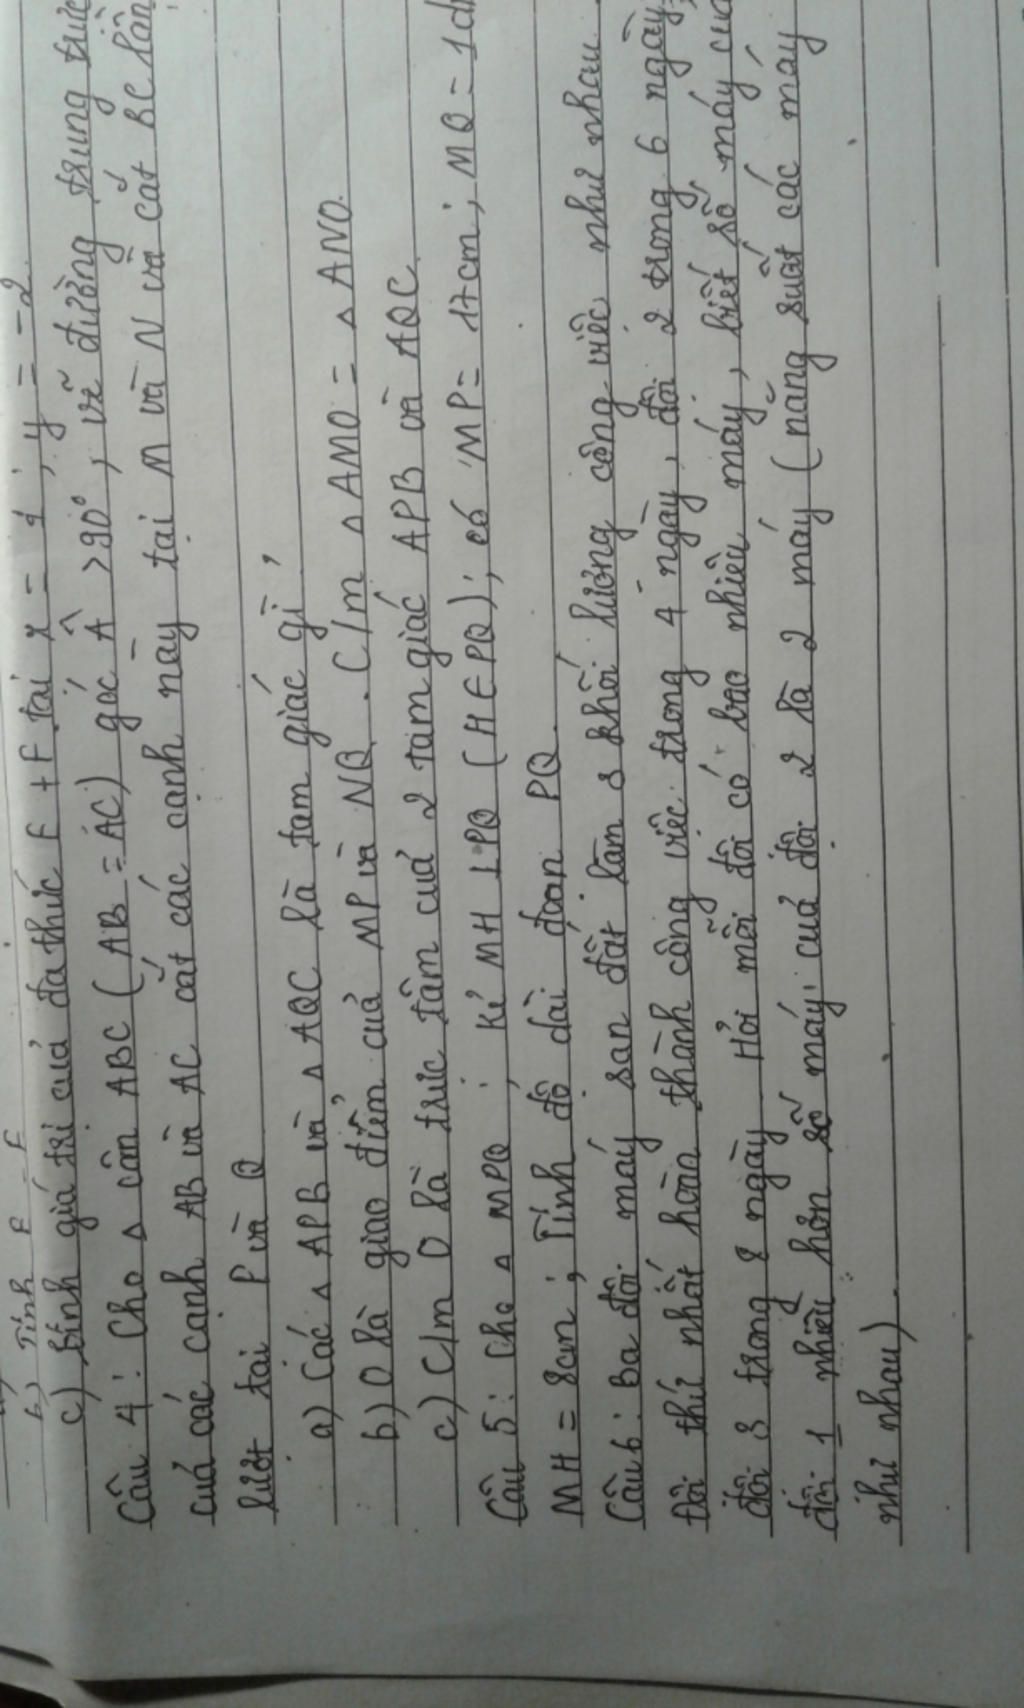 b) Tính E - F
c) tính giá trị của đa thức E + F tại x = 1 ; y = -2
Câu 4 : Cho Δ cân ABC ( AB = AC ) góc Â > 90° , vẽ đường trung trực
của các cạnh AB và AC cắt các cạnh này tại M và N và cắt BC lần
lượt tại P và Q
a) Các Δ APB và Δ AQC là tam giác gì ?
b) O là giao điểm của MP và NQ . C/m Δ AMO = Δ ANO.
c) C/m O là trực tâm của 2 tam giác APB và AQC
Câu 5 : Cho Δ MPQ ; kẻ MH ⊥ PQ ( H ∈ PQ ) ; có MP = 17cm ; MQ =
MH = 8cm ; Tính độ dài đoạn PQ
Câu 6 : Ba đội máy san đất làm 3 khối lượng công việc như nhau.
Đội thứ nhất hoàn thành công việc trong 4 ngày , đội 2 trong 6 ngày,
đội 3 trong 8 ngày Hỏi mỗi đội có bao nhiêu máy , biết số máy của
đội 1 nhiều hơn số máy của đội 2 là 2 máy ( năng suất các máy
như nhau )